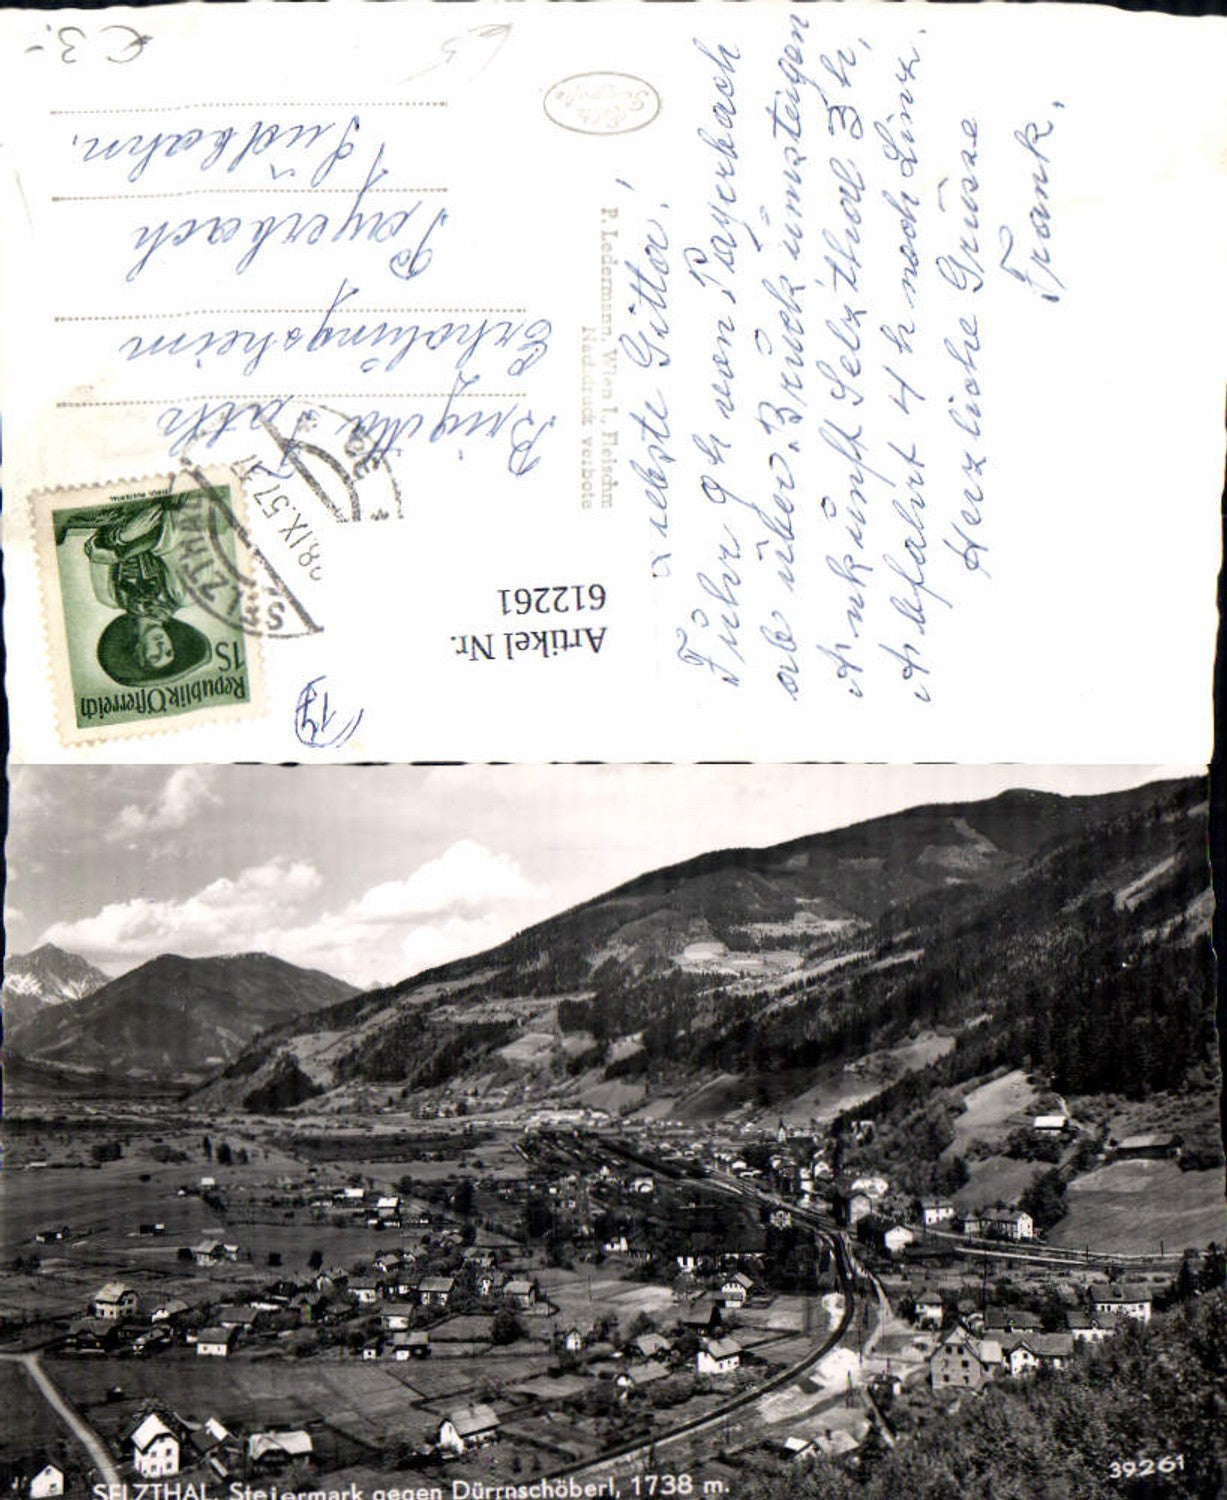 € 3.-
Liebste Gitta,
Fuhr 9h von Payerbach
ab über Bruck umsteigen
Ankunft Selzthal 3 h,
Abfahrt 4 h nach Linz.
Herzliche Grüsse
Frank.
P. Ledermann, Wien I., Fleischm
Nachdruck verbote
Brigitta
Erholungsheim
Payerbach
Südbahn,
Republik Österreich
1S
SELZTHAL
28.IX.57
Artikel Nr.
612261
SELZTHAL, Steiermark gegen Dürrnschöberl, 1738 m.
39261